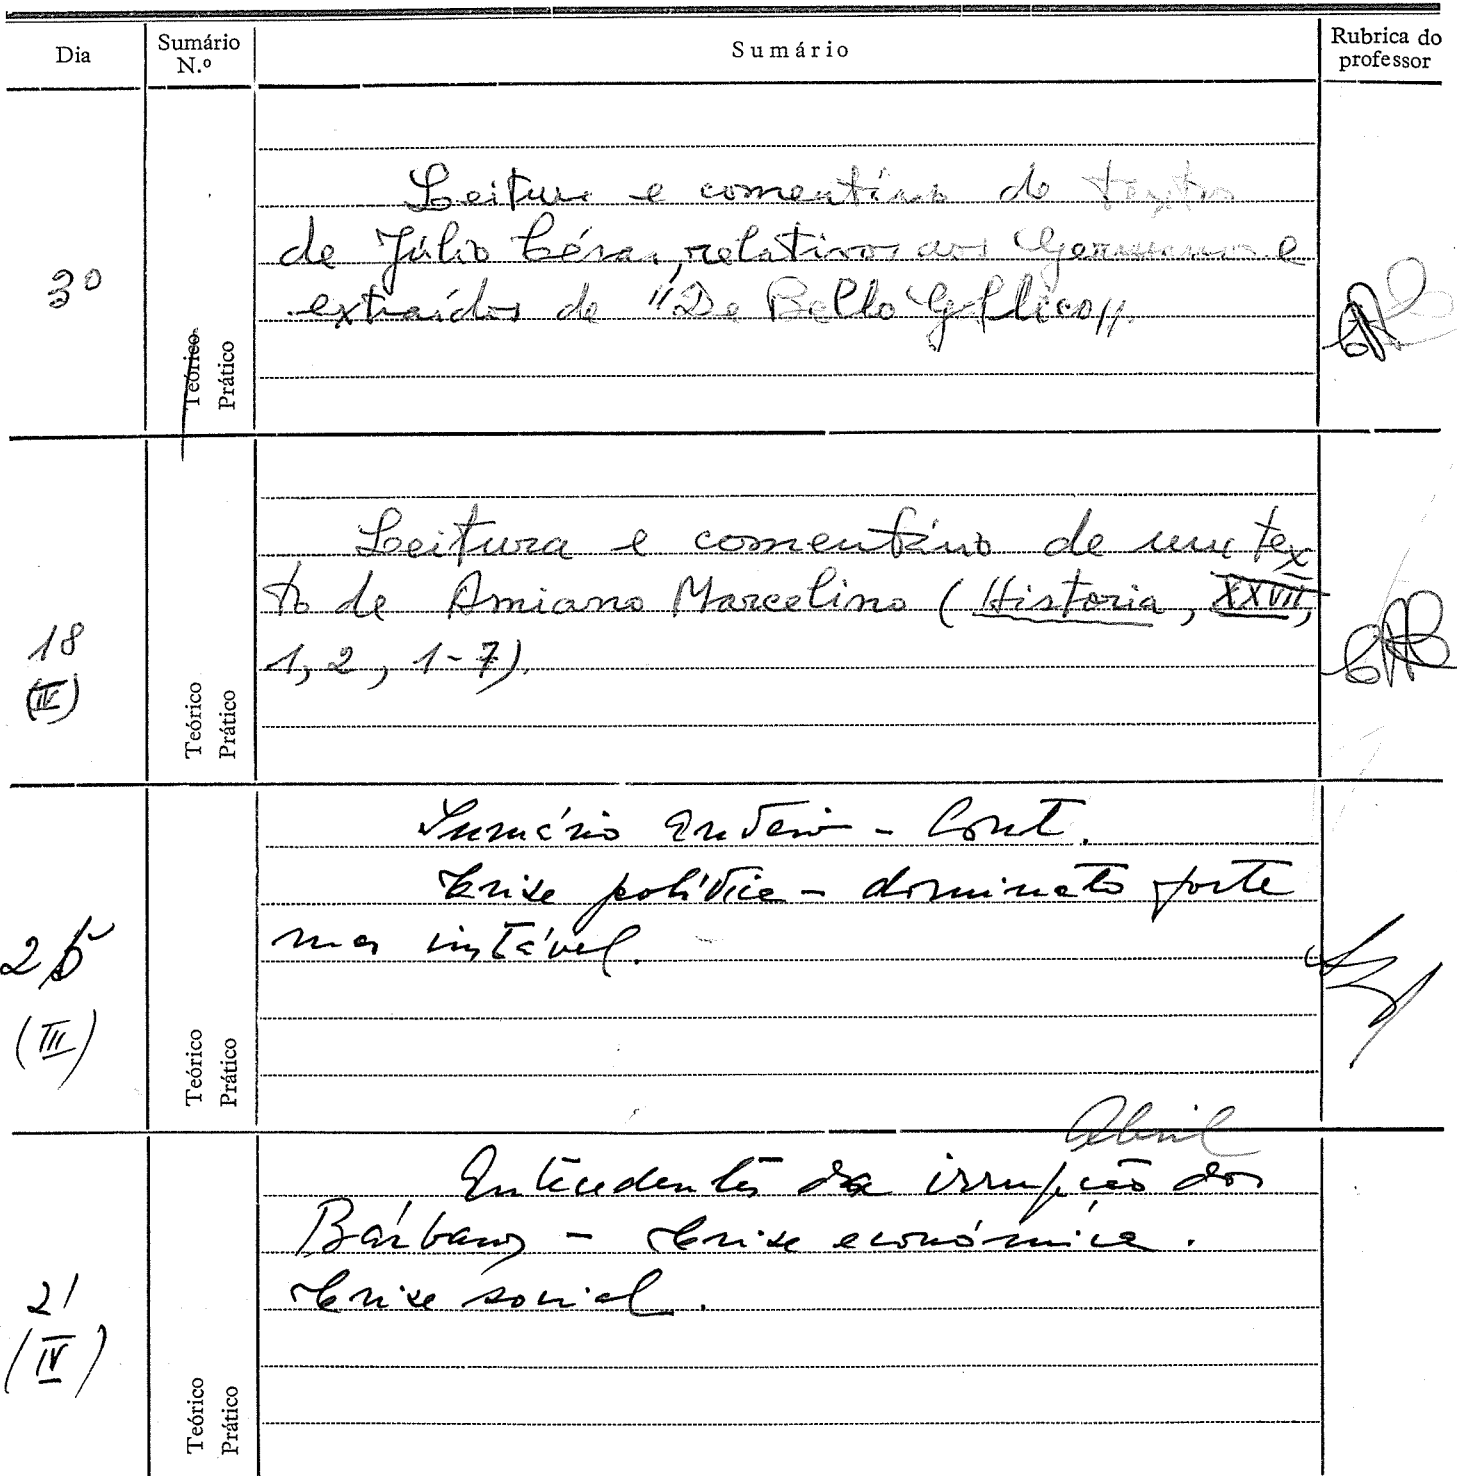 Dia
Sumário
N.º
Sumário
Rubrica do
professor
30
Teórico
Prático
Leitura e comentário de textos
de Júlio César, relativos aos Germanos e
extraídos de "De Bello Gallico".
18
(IV)
Teórico
Prático
Leitura e comentário de um tex
to de Amiano Marcelino (Historia, XXVII,
1, 2, 1-7).
25
(III)
Teórico
Prático
Sumário - Cont.
Crise política - dominato forte
mas instável.
Abril
21
(IV)
Teórico
Prático
Antecedentes da irrupção dos
Bárbaros - Crise económica.
Crise social.